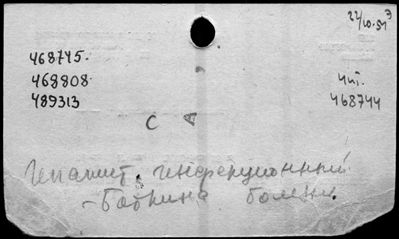 22/10-51 Э
468745.
468808.
489313
чит.
468744
С А
Гепатит. инфекционный
- Боткина болезнь.